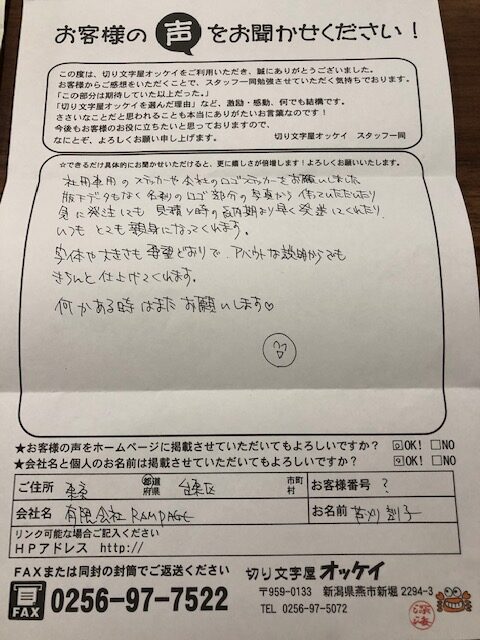 お客様の声をお聞かせください！
この度は、切り文字屋オッケイをご利用いただき、誠にありがとうございました。
お客様からご感想をいただくことで、スタッフ一同勉強させていただく気持ちでおります。
「この部分は期待していた以上だった。」
「切り文字屋オッケイを選んだ理由」など、激励・感動、何でも結構です。
ささいなことだと思われることも本当にありがたいお言葉なのです！
今後もお客様のお役に立ちたいと思っておりますので、
なにとぞ、よろしくお願い申し上げます。 切り文字屋オッケイ スタッフ一同
☆できるだけ具体的にお聞かせいただけると、更に嬉しさが倍増します！よろしくお願いいたします。
社用車用のステッカーや会社のロゴステッカーをお願いしました
版下データもなく名刺のロゴ部分の写真から作っていただいたり
急に発注しても見積り時の納期より早く発送してくれたり、
いつもとても親身になってくれます。
字体や大きさも要望どおりで、アバウトな説明からでも
きちんと仕上げてくれます。
何かある時はまたお願いします♡
★お客様の声をホームページに掲載させていただいてもよろしいですか？ OK! NO
★会社名と個人のお名前は掲載させていただいてもよろしいですか？ OK! NO
ご住所 東京 都道府県 台東区 市町村 お客様番号 ?
会社名 有限会社 RAMPAGE お名前 苅 子
リンク可能な場合ご記入ください
HPアドレス http://
FAXまたは同封の封筒でご返送ください
FAX 0256-97-7522
切り文字屋 オッケイ
〒959-0133 新潟県燕市新堀 2294-3
TEL 0256-97-5072